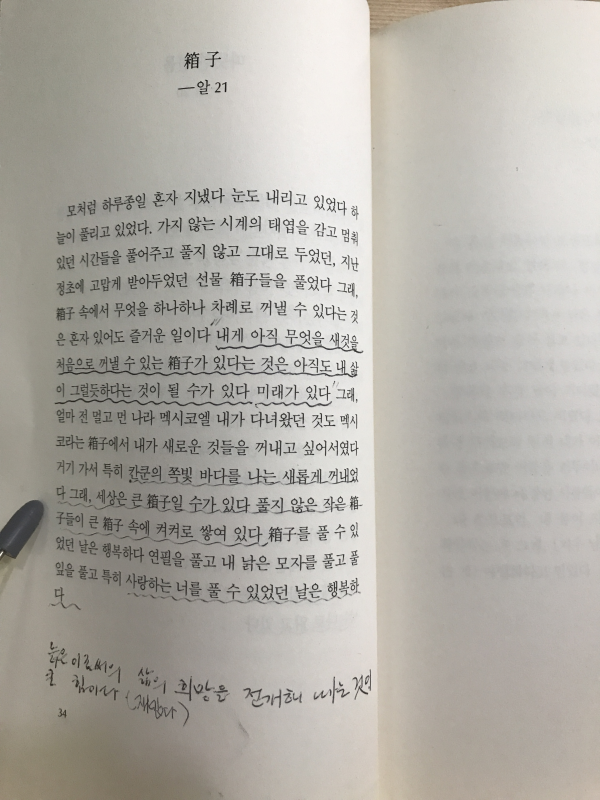 箱子
—알 21
모처럼 하루종일 혼자 지냈다 눈도 내리고 있었다 하
늘이 풀리고 있었다. 가지 않는 시계의 태엽을 감고 멈춰
있던 시간들을 풀어주고 풀지 않고 그대로 두었던, 지난
정초에 고맙게 받아두었던 선물 箱子들을 풀었다 그래,
箱子 속에서 무엇을 하나하나 차례로 꺼낼 수 있다는 것
은 혼자 있어도 즐거운 일이다 내게 아직 무엇을 새것을
처음으로 꺼낼 수 있는 箱子가 있다는 것은 아직도 내 삶
이 그럴듯하다는 것이 될 수가 있다 미래가 있다 그래,
얼마 전 멀고 먼 나라 멕시코엘 내가 다녀왔던 것도 멕시
코라는 箱子에서 내가 새로운 것들을 꺼내고 싶어서였다
거기 가서 특히 칸쿤의 쪽빛 바다를 나는 새롭게 꺼내었
다 그래, 세상은 큰 箱子일 수가 있다 풀지 않은 작은 箱
子들이 큰 箱子 속에 켜켜로 쌓여 있다 箱子를 풀 수 있
었던 날은 행복하다 연필을 풀고 내 낡은 모자를 풀고 풀
잎을 풀고 특히 사랑하는 너를 풀 수 있었던 날은 행복하
다
늙은이로써의 삶의 희망을 전개해 나는 것의
힘이다
34